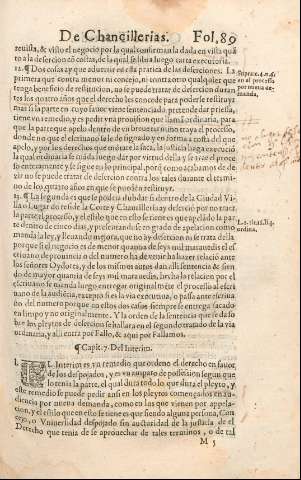 De Chancillerias. Fol, 89
reuista, & visto el negocio por la qual confirman la dada en vista quã
to a la deserciõ cõ costas, de la qual se libra luego carta executoria.
12. ¶ Dos cosas ay que aduertir en esta pratica de las deserciones. La
primera que contra menor ni concejo, ni contra otro qualquier que
tenga beneficio de restitucion, no se puede tratar de desercion duran
tes los quatro años que el derecho les concede para poderse restituyr,
mas si la parte en cuyo fauor viene sentenciado, pretende dar priessa,
tiene vn remedio, y es pedir vna prouision que llaman ordinaria, para
que la parte que apelo dentro de vn breue termino trayga el processo,
donde no que el escriuano se le de signado y en forma a costa del que
apelo, y por los derechos que môtare la saca, la justicia a quien
la ordinaria es cometida luego dar por virtud della y se trae el proce
so enteramente y se sigue en lo principal, porque como acabamos de de
zir no se puede tratar de desercion contra los tales durante el termi
no de los quatro años en que se pueden restituyr.
13. ¶ La segunda es que se podria dubdar si dentro de la Ciudad Vi
lla o Lugar do reside la Corte y Chancilleria ay desercion por no tra
tar la parte el processo, y el estilo que en esto se tiene es que apelãdo la par
te dentro de cinco dias, y presentandose en grado de apelacion como
manda la ley, y lleuando mejora, que no ay desercion ni se trata della
porque si el negocio es de menor quantia de seys mil marauedis el es
criuano de prouincia o del numero ha de venir ha hazer relacion ante
los señores Oydores, y de los mismos autos dan alli sentencia & sien
do de mayor quantia de seys mil marauedis, hecha la relacion por el
escriuano se manda luego entregar original mête el processo al escri
uano de la audiencia, excepto si es via executiua, o passa ante escriua
no del numero porque en estos dos casos siempre se entrega sacado
en limpio y no original mente. Y la orden de la sentencia que se da so
bre los pleytos de desercion se hallara en el segundo tratado de la via
ordinaria, y alli entra por Fallo, & aqui por Fallamos.
¶ Capit. 7. Del Interim.
1. EL Interim es vn remedio que ordeno el derecho en fauor
de los despojados, y en vn amparo de possession segun que
lo tenia la parte, el qual dura todo lo que dura el pleyto, y
este remedio se puede pedir ansi en los pleytos començados en au
diencia por nueua demanda, como en los que vienen por apela-
cion, y el estilo que en esto se tiene es que siendo alguna persona, Con
cejo, o Vniuersidad despojado sin autoridad de la justicia de el
Derecho que tenia de se aprouechar de tales terminos, o de tal
M 5
en el processo
por nueua de-
manda.